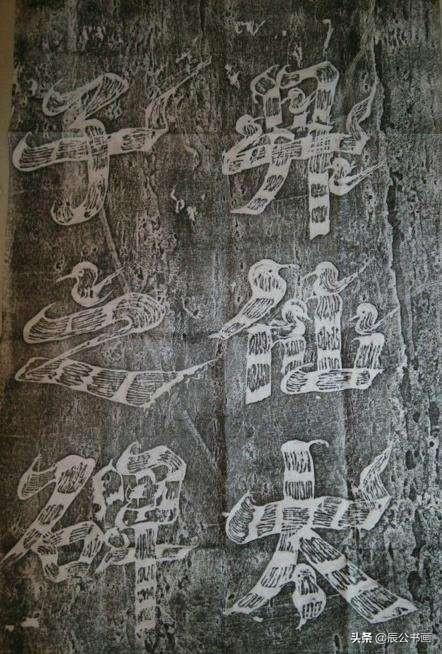 昇仙太
子之碑
头条 @辰公书画